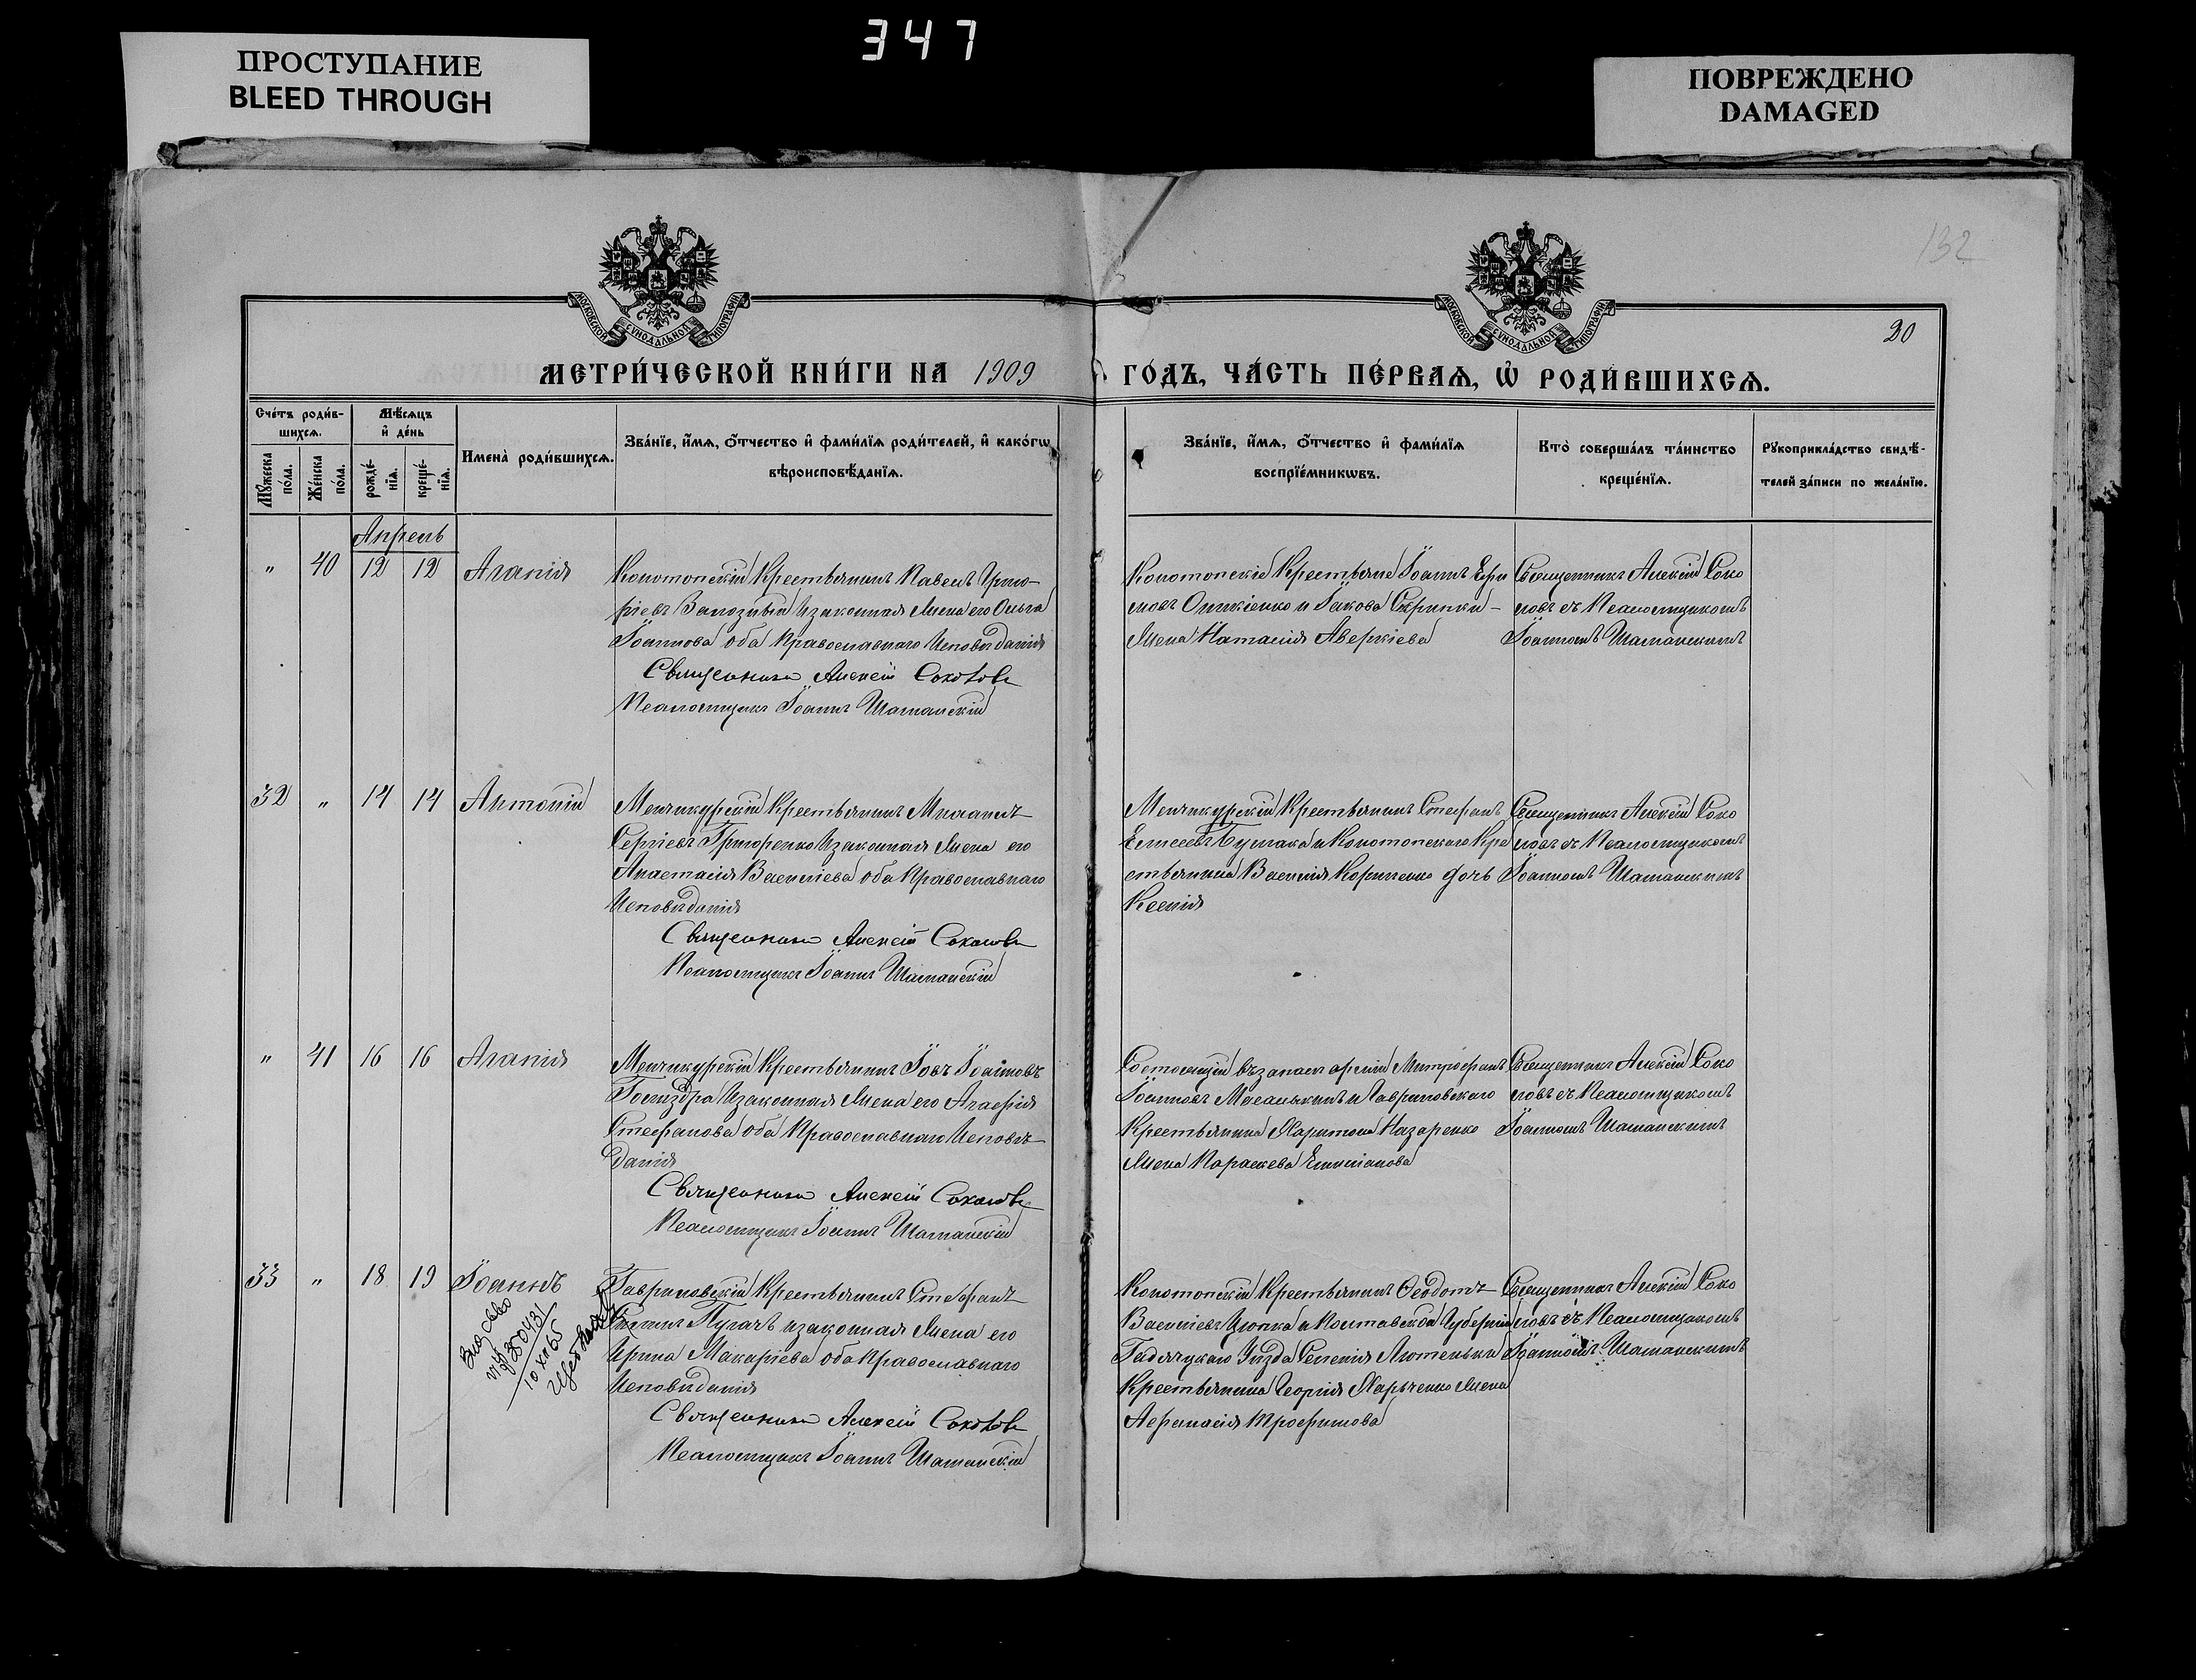 347
ПРОСТУПАНИЕ
BLEED THROUGH
ПОВРЕЖДЕНО
DAMAGED
132
МОСКОВСКОЙ СУНОДАЛЬНОЙ ТИПОГРАФІИ
МОСКОВСКОЙ СУНОДАЛЬНОЙ ТИПОГРАФІИ
20
МЕТРИ́ЧЕСКОЙ КНИ́ГИ НА 1909 ГО́ДЪ, ЧА́СТЬ ПЕ́РВАѦ, Ѡ҆ РОДИ́ВШИХСѦ.
Сче́тъ роди́в-
шихсѧ.
Мѣ́сѧцъ
и҆ де́нь
Мꙋ́жеска
по́ла.
Же́нска
по́ла.
рожде́-
нїѧ.
креще́-
нїѧ.
Имена̀ роди́вшихсѧ.
Зва́нїе, и҆́мѧ, ѻ҆́тчество и҆ фами́лїѧ роди́телей, и҆ како́гѡ
вѣроисповѣ́данїѧ.
Зва́нїе, и҆́мѧ, ѻ҆́тчество и҆ фами́лїѧ
воспрїе́мникѡвъ.
Кто̀ соверша́лъ та́инство
креще́нїѧ.
Рꙋкоприкла́дство свидѣ́-
телей за́писи по жела́нїю.
Апрель
" 40 12 12 Агапія
Конотопскій Крестьянинъ Павелъ Григо-
ріевъ и законная Жена его Ольга
Іоаннова оба Православнаго Исповѣданія
Священникъ Алексѣй Соколовъ
Псаломщикъ Іоаннъ Шаманскій
Конотопскіе Крестьяне Іоаннъ Ефи
мовъ Оникіенко и Іакова Скрипки -
Жена Наталія Аверкіева
Священникъ Алексій Соко
ловъ съ Псаломщикомъ
Іоанномъ Шаманскимъ
32 " 14 14 Антоній
Менчикурскій Крестьянинъ Михаилъ
Сергіевъ Григоренко и законная Жена его
Анастасія Васильева оба Православнаго
Исповѣданія
Священникъ Алексѣй Соколовъ
Псаломщикъ Іоаннъ Шаманскій
Менчикурскій Крестьянинъ Стефанъ
Елисеевъ и Конотопскаго Кре
стьянина Василія Корниенко дочь
Ксенія
Священникъ Алексій Соко
ловъ съ Псаломщикомъ
Іоанномъ Шаманскимъ
" 41 16 16 Агапія
Менчикурскій Крестьянинъ Іовъ Іоанновъ
и законная Жена его Агафія
Стефанова оба Православнаго Исповѣ-
данія
Священникъ Алексѣй Соколовъ
Псаломщикъ Іоаннъ Шаманскій
Состоящій въ запасѣ арміи Митрофанъ
Іоанновъ и Гавриловскаго
Крестьянина Харитона Назаренко
Жена Параскева Емиліанова
Священникъ Алексій Соко
ловъ съ Псаломщикомъ
Іоанномъ Шаманскимъ
33 " 18 19 Іоаннъ
Гавриловскій Крестьянинъ Стефанъ
Пугачъ и законная Жена его
Ирина Макаріева оба Православнаго
Исповѣданія
Священникъ Алексѣй Соколовъ
Псаломщикъ Іоаннъ Шаманскій
Конотопскій Крестьянинъ Ѳеодотъ
Васильевъ Цюпка и Полтавской Губерніи
Гадячскаго Уѣзда Селенія Лютеньки
Крестьянина Георгія Харченко Жена
Афанасія Трофимова
Священникъ Алексій Соко
ловъ съ Псаломщикомъ
Іоанномъ Шаманскимъ
10 XII 65